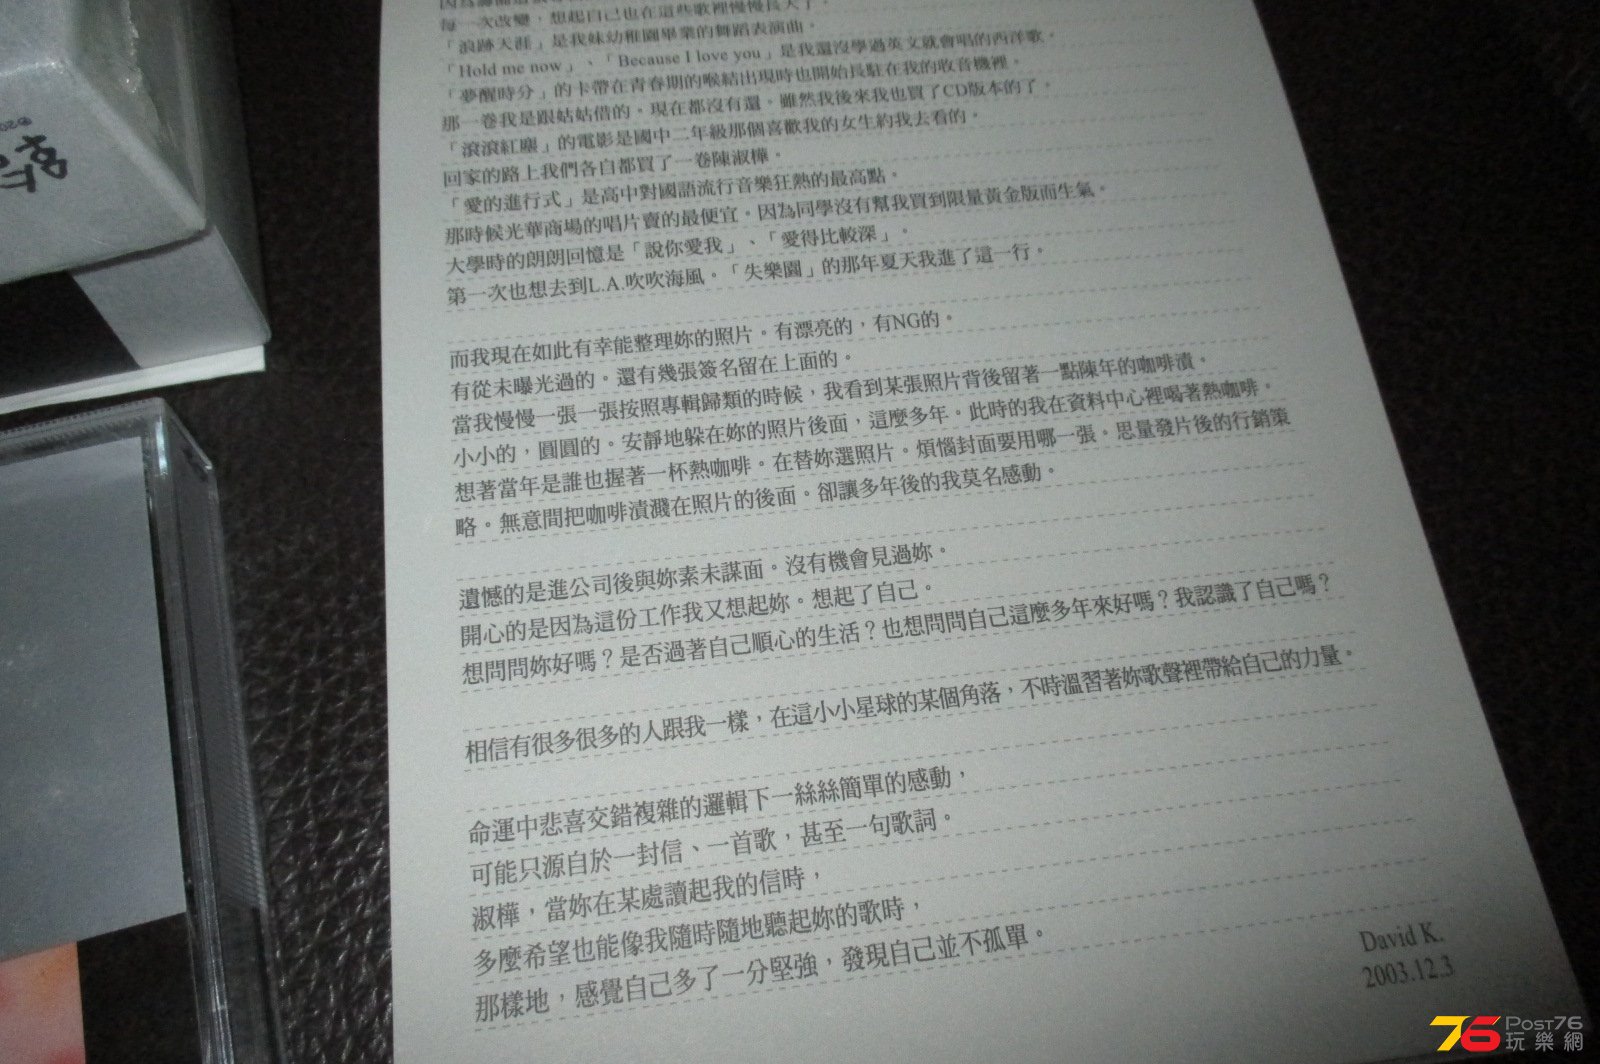 每一次改變，想起自己也在這些歌裡慢慢長大了。
「浪跡天涯」是我妹幼稚園畢業的舞蹈表演曲。
「Hold me now」、「Because I love you」是我還沒學過英文就會唱的西洋歌。
「夢醒時分」的卡帶在青春期的喉結出現時也開始長駐在我的收音機裡。
那一卷我是跟姑姑借的。現在都沒有還。雖然我後來我也買了CD版本的了。
「滾滾紅塵」的電影是國中二年級那個喜歡我的女生約我去看的。
回家的路上我們各自都買了一卷陳淑樺。
「愛的進行式」是高中對國語流行音樂狂熱的最高點。
那時候光華商場的唱片賣的最便宜。因為同學沒有幫我買到限量黃金版而生氣。
大學時的朗朗回憶是「說你愛我」、「愛得比較深」。
第一次也想去到L.A.吹吹海風。「失樂園」的那年夏天我進了這一行。
而我現在如此有幸能整理妳的照片。有漂亮的，有NG的。
有從未曝光過的。還有幾張簽名留在上面的。
當我慢慢一張一張按照專輯歸類的時候，我看到某張照片背後留著一點陳年的咖啡漬。
小小的，圓圓的。安靜地躲在妳的照片後面，這麼多年。此時的我在資料中心裡喝著熱咖啡。
想著當年是誰也握著一杯熱咖啡。在替妳選照片。煩惱封面要用哪一張。思量發片後的行銷策
略。無意間把咖啡漬濺在照片的後面。卻讓多年後的我莫名感動。
遺憾的是進公司後與妳素未謀面。沒有機會見過妳。
開心的是因為這份工作我又想起妳。想起了自己。
想問問妳好嗎？是否過著自己順心的生活？也想問問自己這麼多年來好嗎？我認識了自己嗎？
相信有很多很多的人跟我一樣，在這小小星球的某個角落，不時溫習著妳歌聲裡帶給自己的力量。
命運中悲喜交錯複雜的邏輯下一絲絲簡單的感動，
可能只源自於一封信、一首歌，甚至一句歌詞。
淑樺，當妳在某處讀起我的信時，
多麼希望也能像我隨時隨地聽起妳的歌時，
那樣地，感覺自己多了一分堅強，發現自己並不孤單。
David K.
2003.12.3
76 POST76
玩樂網